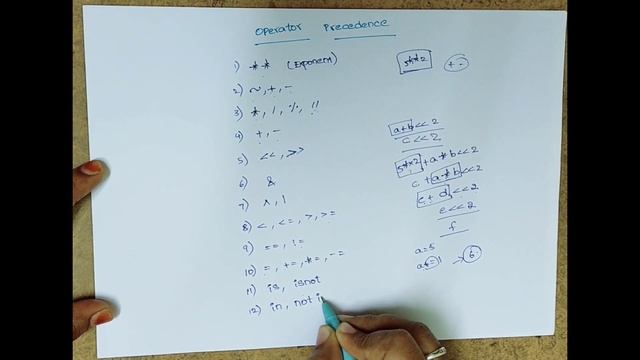 Operator Precedence
1) ** (Exponent)
2) ~, +, -
3) *, /, %, //
4) +, -
5) <<, >>
6) &
7) ^, |
8) <, <=, >, >=
9) ==, !=
10) =, +=, *=, -=
11) is, isnot
12) in, not i
5**2 + -
a+b<<2
c<<2
5**2+a*b<<2
c+a*b<<2
c+d<<2
e<<2
f
a=5
→ 6